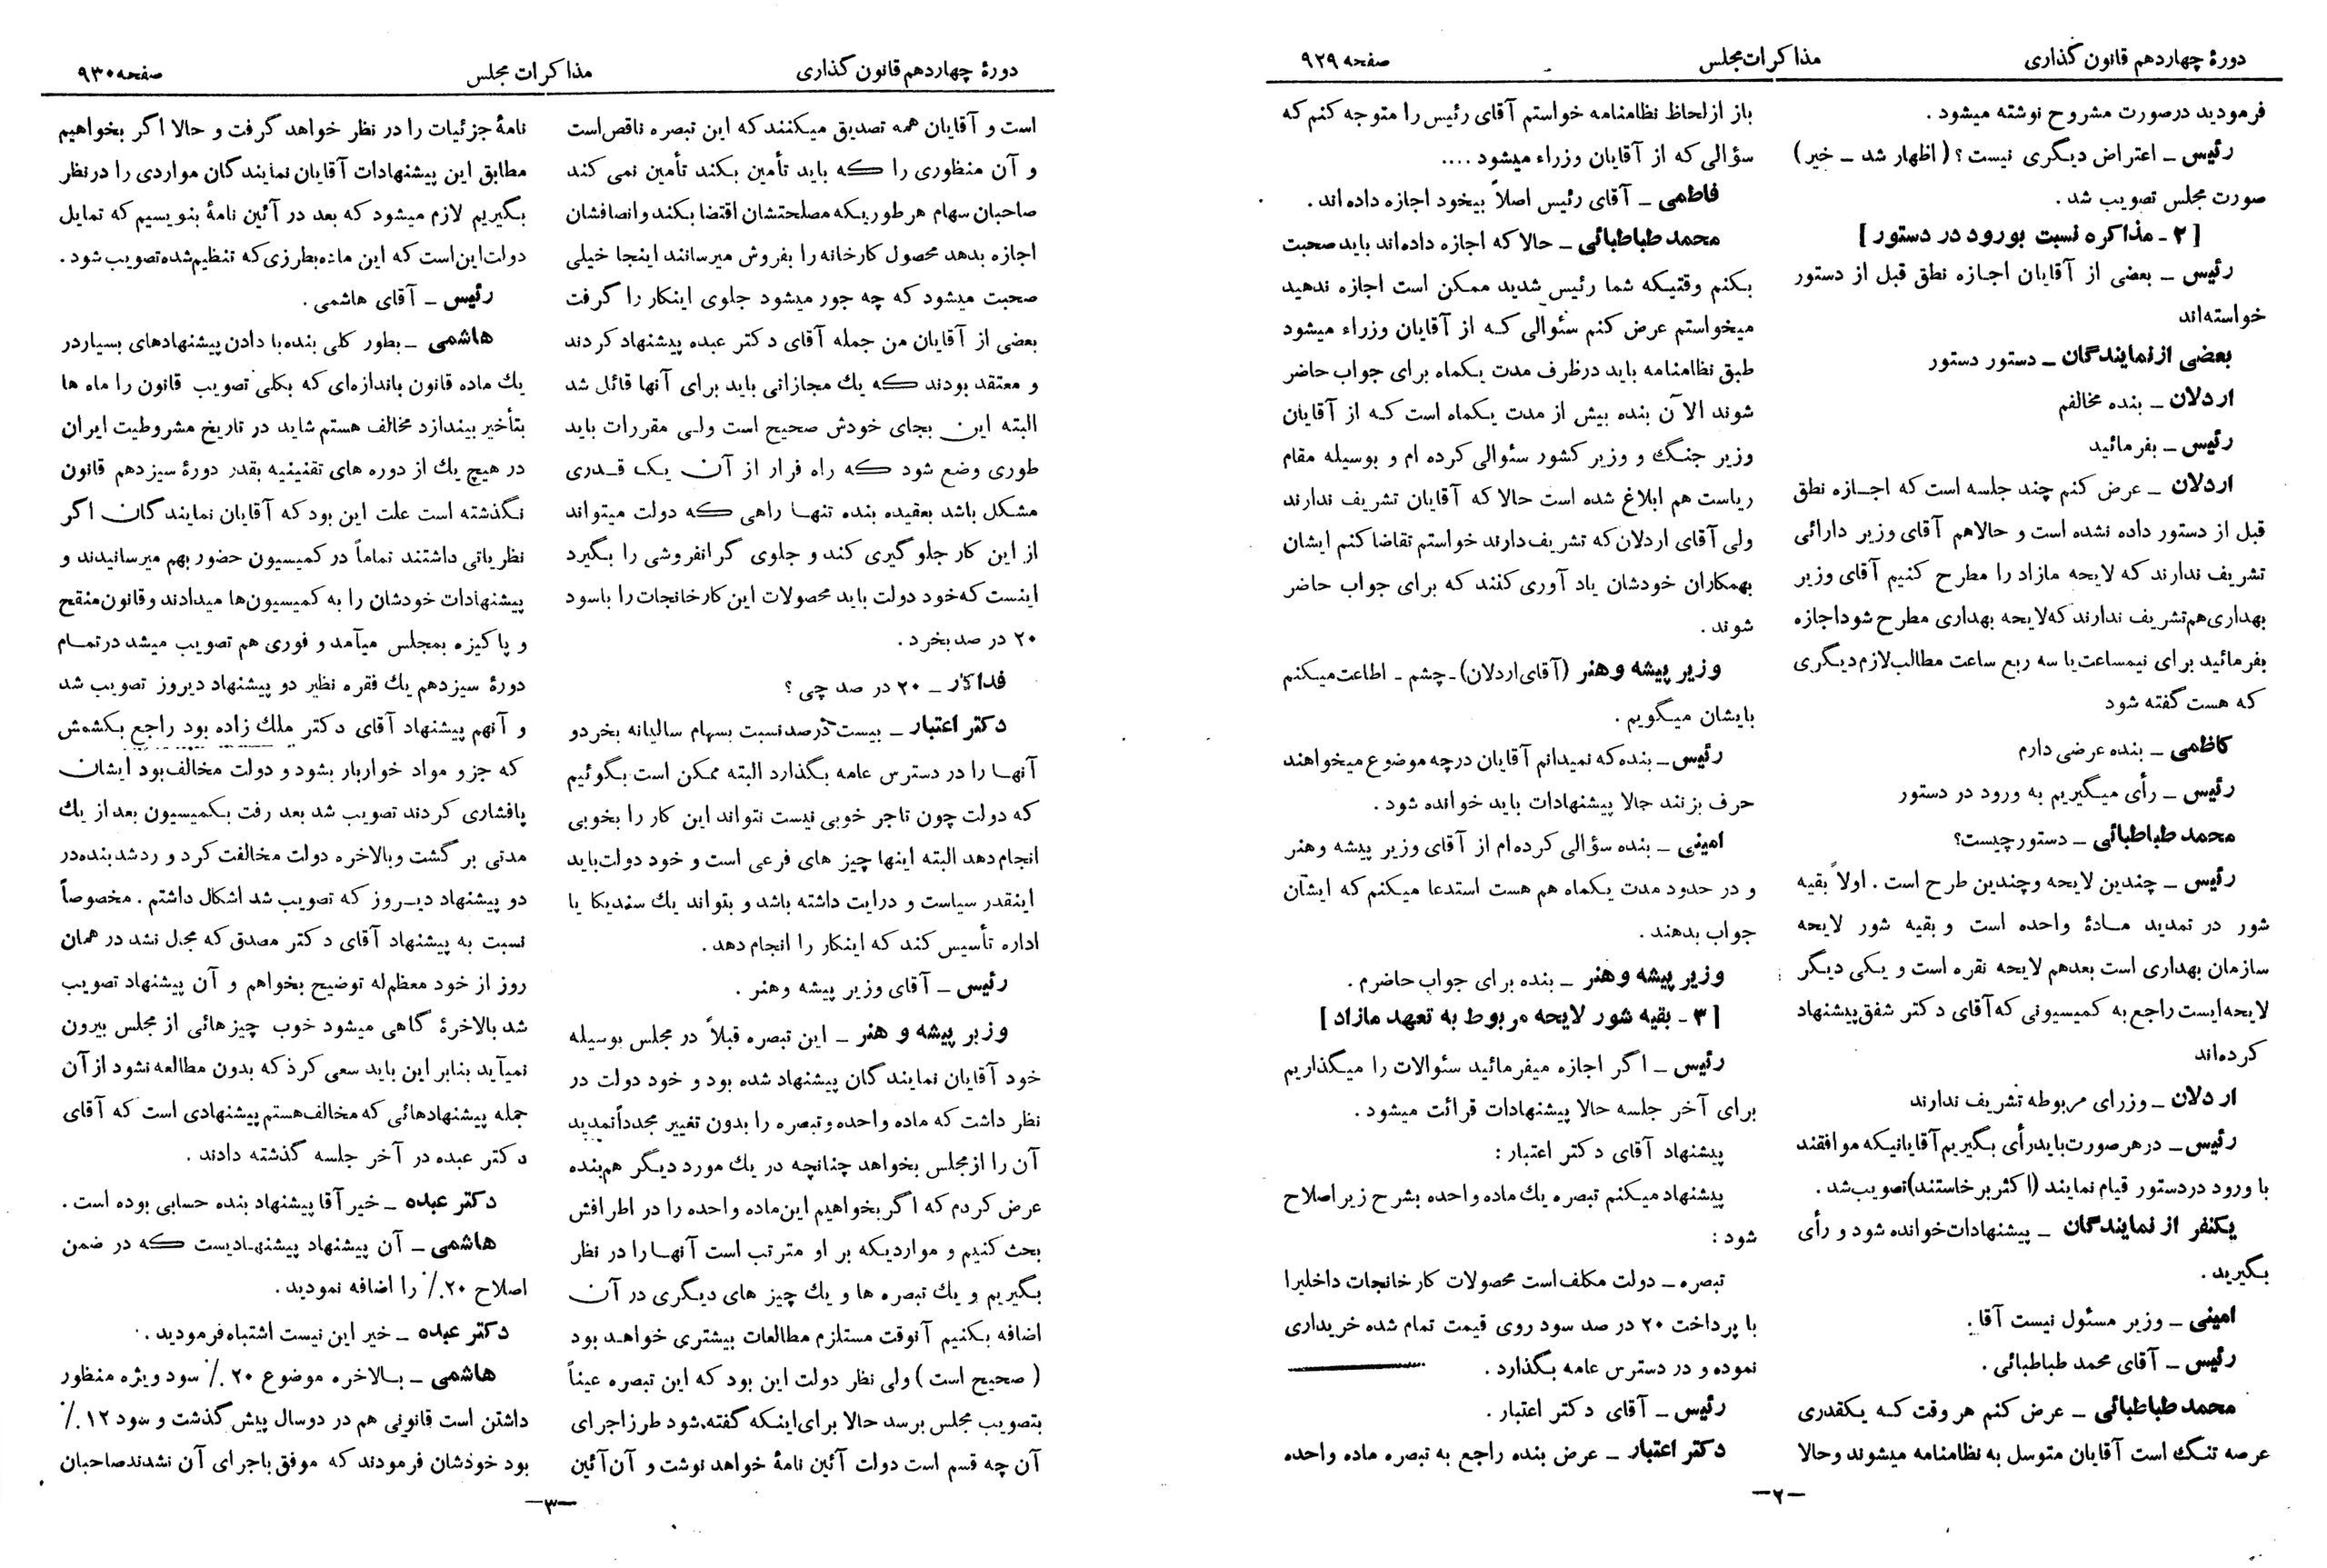 دورهٔ چهاردهم قانون گذاری
مذاکرات مجلس
صفحه ۹۲۹
فرمودید درصورت مشروح نوشته میشود .
رئیس ـ اعتراض دیگری نیست ؟ ( اظهار شد ـ خیر )
صورت مجلس تصویب شد .
[ ۲ - مذاکره نسبت بورود در دستور ]
رئیس ـ بعضی از آقایان اجازه نطق قبل از دستور
خواسته‌اند
بعضی از نمایندگان ـ دستور دستور
اردلان ـ بنده مخالفم
رئیس ـ بفرمائید
اردلان ـ عرض کنم چند جلسه است که اجازه نطق
قبل از دستور داده نشده است و حالاهم آقای وزیر دارائی
تشریف ندارند که لایحه مازاد را مطرح کنیم آقای وزیر
بهداری هم تشریف ندارند که لایحه بهداری مطرح شود اجازه
بفرمائید برای نیمساعت یا سه ربع ساعت مطالب لازم دیگری
که هست گفته شود
کاظمی ـ بنده عرضی دارم
رئیس ـ رأی میگیریم به ورود در دستور
محمد طباطبائی ـ دستور چیست؟
رئیس ـ چندین لایحه وچندین طرح است . اولاً بقیه
شور در تمدید مادهٔ واحده است و بقیه شور لایحه
سازمان بهداری است بعدهم لایحه نقره است و یکی دیگر
لایحه‌ایست راجع به کمیسیونی که آقای دکتر شفق پیشنهاد
کرده‌اند
اردلان ـ وزرای مربوطه تشریف ندارند
رئیس ـ درهرصورت باید رأی بگیریم آقایانیکه موافقند
با ورود دردستور قیام نمایند (اکثر برخاستند) تصویب شد .
یکنفر از نمایندگان ـ پیشنهادات خوانده شود و رأی
بگیرید .
امینی ـ وزیر مسئول نیست آقا .
رئیس ـ آقای محمد طباطبائی .
محمد طباطبائی ـ عرض کنم هر وقت که یکقدری
عرصه تنگ است آقایان متوسل به نظامنامه میشوند وحالا
باز ازلحاظ نظامنامه خواستم آقای رئیس را متوجه کنم که
سؤالی که از آقایان وزراء میشود ....
فاطمی ـ آقای رئیس اصلاً بیخود اجازه داده اند .
محمد طباطبائی ـ حالا که اجازه داده‌اند باید صحبت
بکنم وقتیکه شما رئیس شدید ممکن است اجازه ندهید
میخواستم عرض کنم سئوالی که از آقایان وزراء میشود
طبق نظامنامه باید درظرف مدت یکماه برای جواب حاضر
شوند الآن بنده بیش از مدت یکماه است که از آقایان
وزیر جنگ و وزیر کشور سئوالی کرده ام و بوسیله مقام
ریاست هم ابلاغ شده است حالا که آقایان تشریف ندارند
ولی آقای اردلان که تشریف دارند خواستم تقاضا کنم ایشان
بهمکاران خودشان یاد آوری کنند که برای جواب حاضر
شوند .
وزیر پیشه و هنر (آقای اردلان) ـ چشم ـ اطاعت میکنم
بایشان میگویم .
رئیس ـ بنده که نمیدانم آقایان درچه موضوع میخواهند
حرف بزنند حالا پیشنهادات باید خوانده شود .
امینی ـ بنده سؤالی کرده‌ام از آقای وزیر پیشه وهنر
و در حدود مدت یکماه هم هست استدعا میکنم که ایشان
جواب بدهند .
وزیر پیشه و هنر ـ بنده برای جواب حاضرم .
[ ۳ - بقیه شور لایحه مربوط به تعهد مازاد ]
رئیس ـ اگر اجازه میفرمائید سئوالات را میگذاریم
برای آخر جلسه حالا پیشنهادات قرائت میشود .
پیشنهاد آقای دکتر اعتبار :
پیشنهاد میکنم تبصره یك ماده واحده بشرح زیر اصلاح
شود :
تبصره ـ دولت مکلف است محصولات کارخانجات داخلی‌را
با پرداخت ۲۰ در صد سود روی قیمت تمام شده خریداری
نموده و در دسترس عامه بگذارد .
رئیس ـ آقای دکتر اعتبار .
دکتر اعتبار ـ عرض بنده راجع به تبصره ماده واحده
ـ۲ـ
دورهٔ چهاردهم قانون گذاری
مذاکرات مجلس
صفحه ۹۳۰
است و آقایان همه تصدیق میکنند که این تبصره ناقص است
و آن منظوری را که باید تأمین بکند تأمین نمی کند
صاحبان سهام هر طوریکه مصلحتشان اقتضا بکند و انصافشان
اجازه بدهد محصول کارخانه را بفروش میرسانند اینجا خیلی
صحبت میشود که چه جور میشود جلوی اینکار را گرفت
بعضی از آقایان من جمله آقای دکتر عبده پیشنهاد کردند
و معتقد بودند که یك مجازاتی باید برای آنها قائل شد
البته این بجای خودش صحیح است ولی مقررات باید
طوری وضع شود که راه فرار از آن یک قدری
مشکل باشد بعقیده بنده تنها راهی که دولت میتواند
از این کار جلو گیری کند و جلوی گرانفروشی را بگیرد
اینست که خود دولت باید محصولات این کارخانجات را باسود
۲۰ در صد بخرد .
فداکار ـ ۲۰ در صد چی ؟
دکتر اعتبار ـ بیست درصد نسبت بسهام سالیانه بخرد و
آنها را در دسترس عامه بگذارد البته ممکن است بگوئیم
که دولت چون تاجر خوبی نیست نتواند این کار را بخوبی
انجام دهد البته اینها چیز های فرعی است و خود دولت باید
اینقدر سیاست و درایت داشته باشد و بتواند یك سندیکا یا
اداره تأسیس کند که اینکار را انجام دهد .
رئیس ـ آقای وزیر پیشه وهنر .
وزیر پیشه و هنر ـ این تبصره قبلاً در مجلس بوسیله
خود آقایان نمایندگان پیشنهاد شده بود و خود دولت در
نظر داشت که ماده واحده و تبصره را بدون تغییر مجدداً تمدید
آن را از مجلس بخواهد چنانچه در یك مورد دیگر هم بنده
عرض کردم که اگر بخواهیم این ماده واحده را در اطرافش
بحث کنیم و مواردیکه بر او مترتب است آنها را در نظر
بگیریم و یك تبصره ها و یك چیز های دیگری در آن
اضافه بکنیم آنوقت مستلزم مطالعات بیشتری خواهد بود
( صحیح است ) ولی نظر دولت این بود که این تبصره عیناً
بتصویب مجلس برسد حالا برای اینکه گفته شود طرز اجرای
آن چه قسم است دولت آئین نامهٔ خواهد نوشت و آن آئین
نامهٔ جزئیات را در نظر خواهد گرفت و حالا اگر بخواهیم
مطابق این پیشنهادات آقایان نمایندگان مواردی را درنظر
بگیریم لازم میشود که بعد در آئین نامهٔ بنویسیم که تمایل
دولت این است که این ماده بطرزی که تنظیم شده تصویب شود .
رئیس ـ آقای هاشمی .
هاشمی ـ بطور کلی بنده با دادن پیشنهادهای بسیار در
یك ماده قانون باندازه‌ای که بکلی تصویب قانون را ماه ها
بتأخیر بیندازد مخالف هستم شاید در تاریخ مشروطیت ایران
در هیچ یك از دوره های تقنینیه بقدر دورهٔ سیزدهم قانون
نگذشته است علت این بود که آقایان نمایندگان اگر
نظریاتی داشتند تماماً در کمیسیون حضور بهم میرسانیدند و
پیشنهادات خودشان را به کمیسیون‌ها میدادند و قانون منقح
و پاکیزه بمجلس میآمد و فوری هم تصویب میشد در تمام
دورهٔ سیزدهم یك فقره نظیر دو پیشنهاد دیروز تصویب شد
و آنهم پیشنهاد آقای دکتر ملك زاده بود راجع بکشمش
که جزو مواد خواربار بشود و دولت مخالف بود ایشان
پافشاری کردند تصویب شد بعد رفت بکمیسیون بعد از یك
مدتی بر گشت وبالاخره دولت مخالفت کرد و رد شد بنده در
دو پیشنهاد دیروز که تصویب شد اشکال داشتم . مخصوصاً
نسبت به پیشنهاد آقای دکتر مصدق که مجال نشد در همان
روز از خود معظم‌له توضیح بخواهم و آن پیشنهاد تصویب
شد بالاخرهٔ گاهی میشود خوب چیزهائی از مجلس بیرون
نمیآید بنابر این باید سعی کرد که بدون مطالعه نشود از آن
جمله پیشنهادهائی که مخالف هستم پیشنهادی است که آقای
دکتر عبده در آخر جلسه گذشته دادند .
دکتر عبده ـ خیر آقا پیشنهاد بنده حسابی بوده است .
هاشمی ـ آن پیشنهاد پیشنهادیست که در ضمن
اصلاح ۲۰٪ را اضافه نمودید .
دکتر عبده ـ خیر این نیست اشتباه فرمودید .
هاشمی ـ بالاخره موضوع ۲۰٪ سود ویژه منظور
داشتن است قانونی هم در دوسال پیش گذشت و سود ۱۲٪
بود خودشان فرمودند که موفق باجرای آن نشدند صاحبان
ـ۳ـ